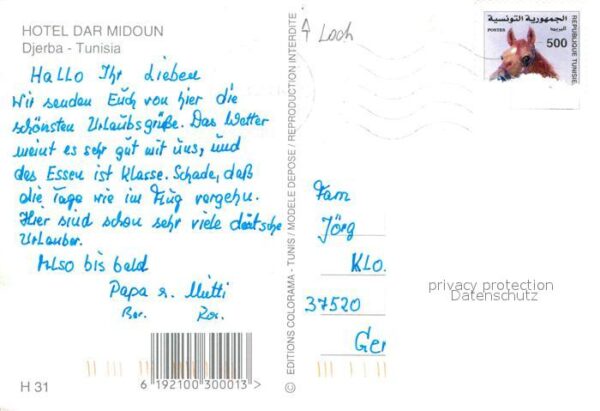 HOTEL DAR MIDOUN
Djerba - Tunisia
Hallo Ihr Lieben
Wir senden Euch von hier die
schönsten Urlaubsgrüße. Das Wetter
meint es sehr gut mit uns, und
das Essen ist Klasse. Schade, daß
die Tage wie im Flug vergehn.
Hier sind schon sehr viele deutsche
Urlauber.
Also bis bald
Papa u. Mutti
H 31
6 192100 300013 >
© EDITIONS COLORAMA - TUNIS / MODELE DEPOSE / REPRODUCTION INTERDITE
الجمهورية التونسية
POSTES
500
REPUBLIQUE TUNISIENNE
Fam
Jörg
Klo.
37520
Ger
privacy protection
Datenschutz